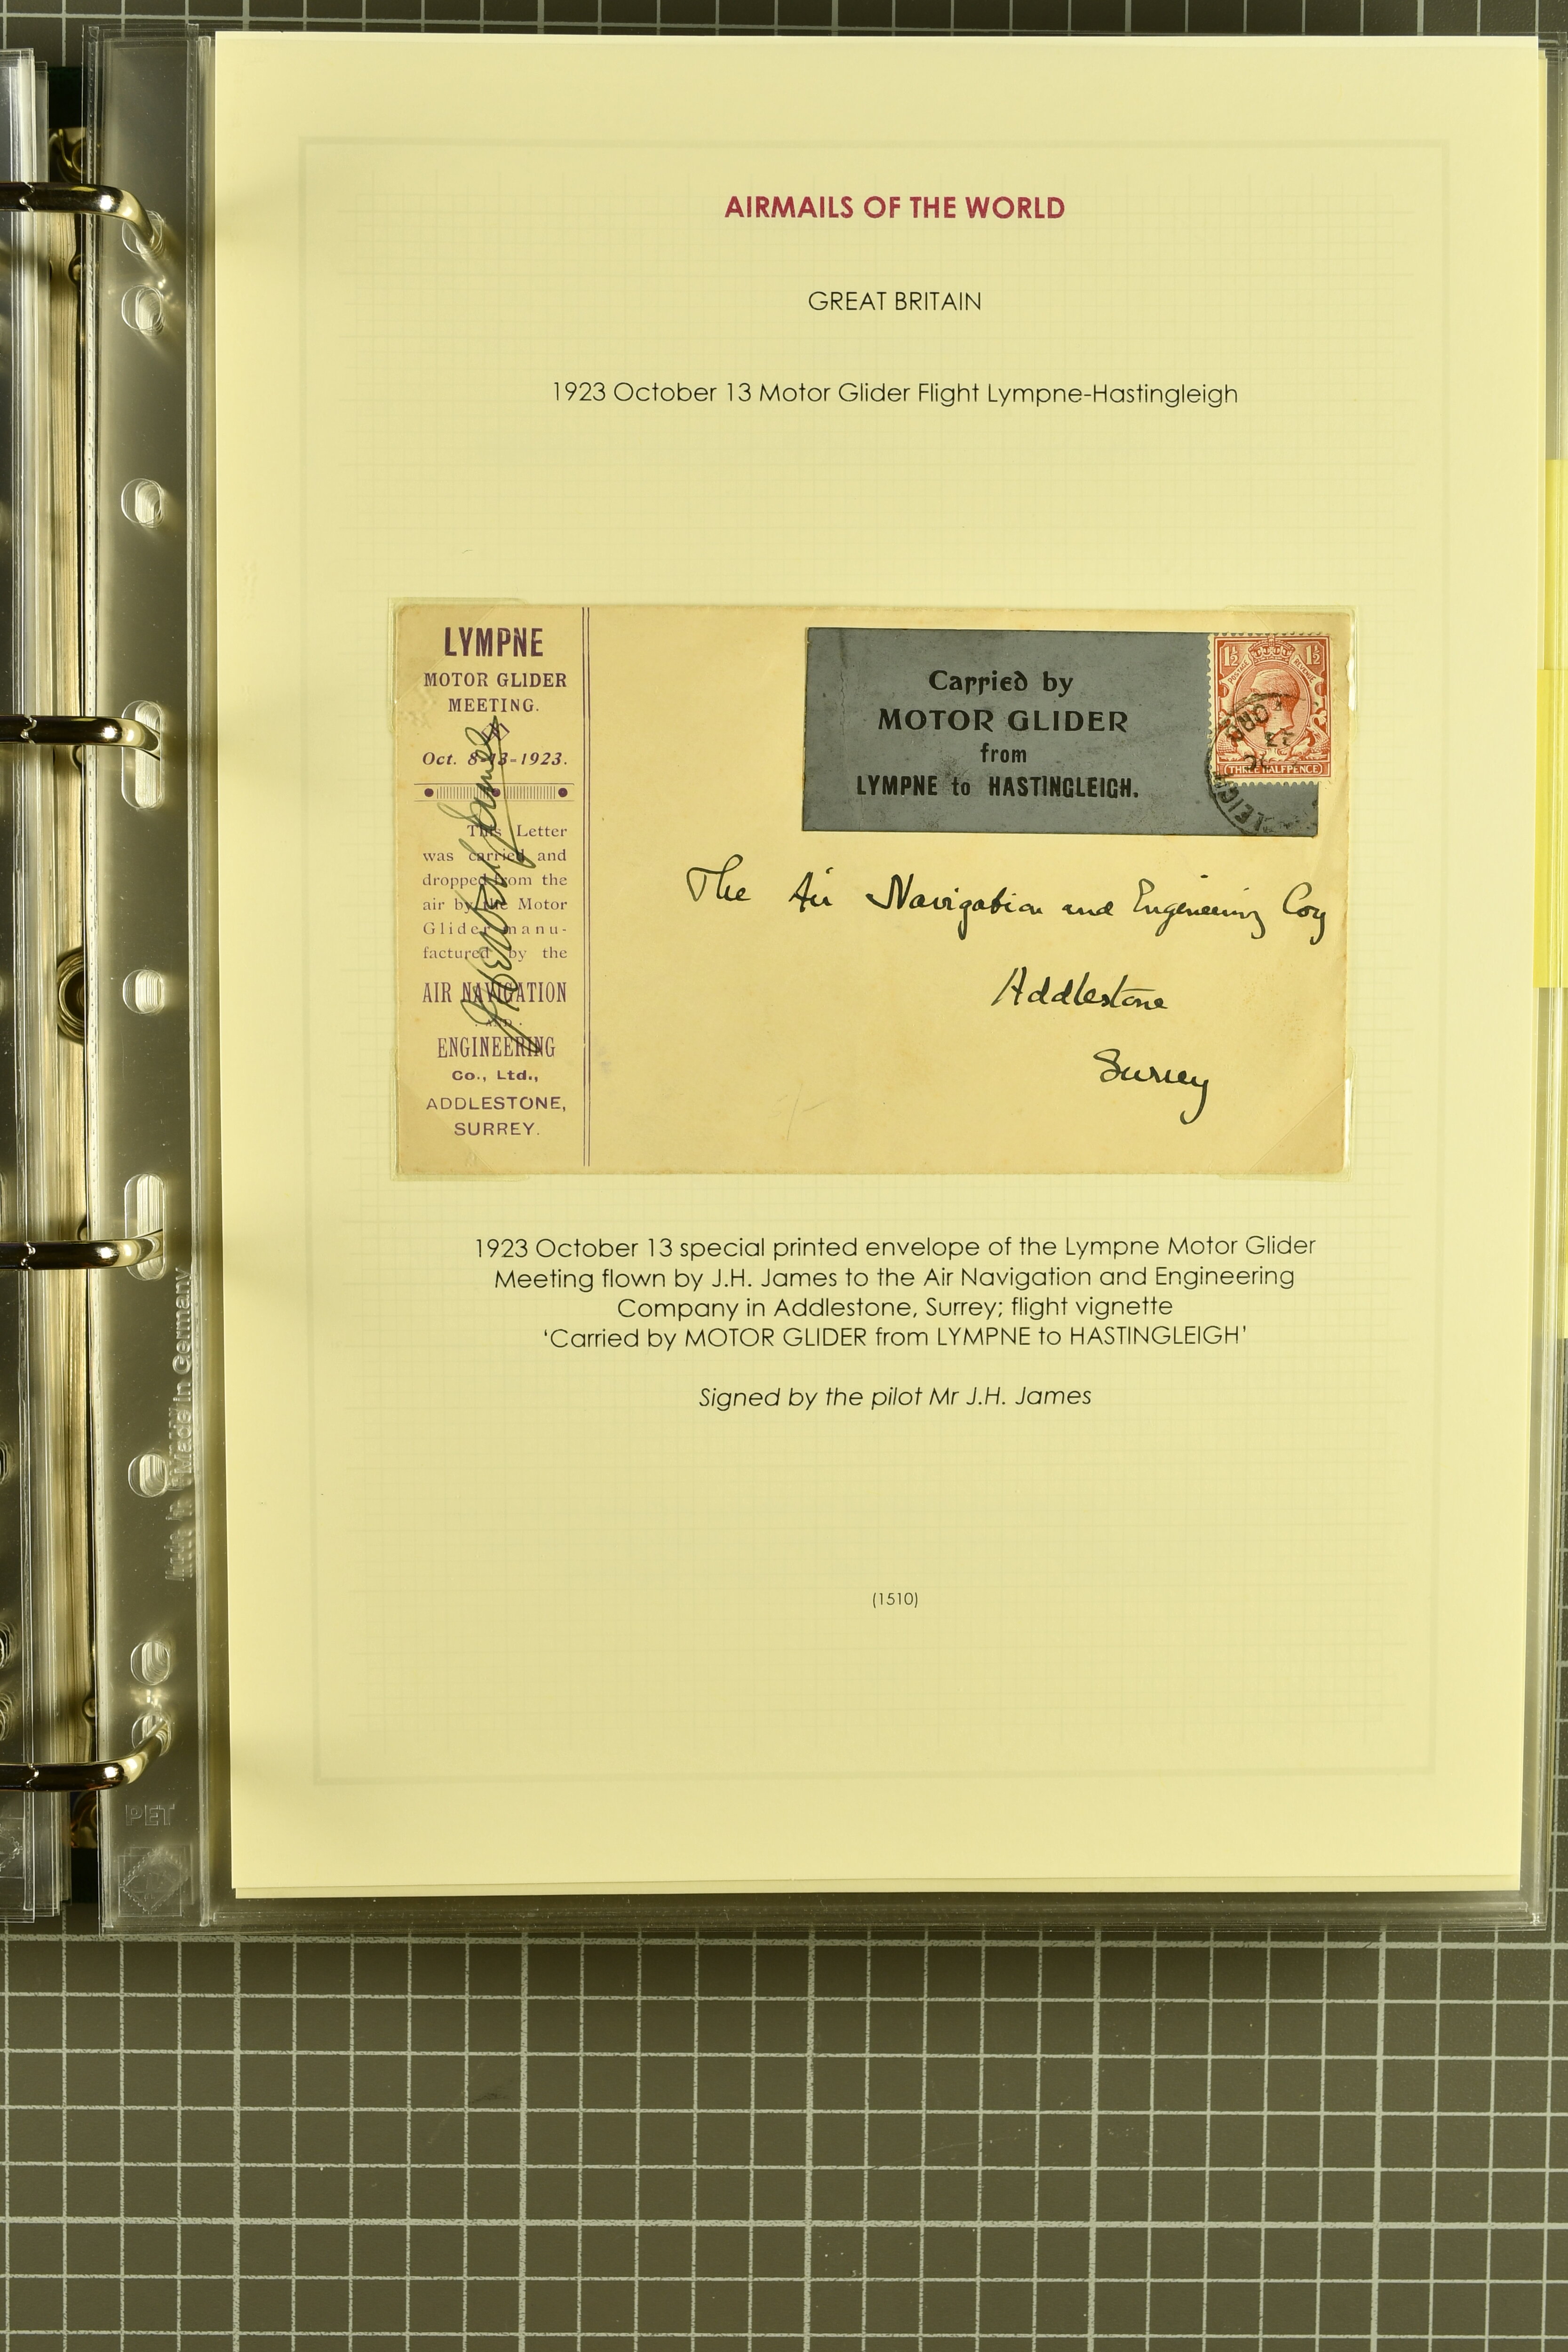 AIRMAILS OF THE WORLD
GREAT BRITAIN
1923 October 13 Motor Glider Flight Lympne-Hastingleigh
LYMPNE
MOTOR GLIDER
MEETING.
Oct. 8-13-1923.
This Letter
was carried and
dropped from the
air by the Motor
Glider manu-
factured by the
AIR NAVIGATION
AND
ENGINEERING
Co., Ltd.,
ADDLESTONE,
SURREY.
Carried by
MOTOR GLIDER
from
LYMPNE to HASTINGLEIGH.
1½ 1½
POSTAGE REVENUE
THREE HALFPENCE
The Air Navigation and Engineering Coy
Addlestone
Surrey
1923 October 13 special printed envelope of the Lympne Motor Glider
Meeting flown by J.H. James to the Air Navigation and Engineering
Company in Addlestone, Surrey; flight vignette
‘Carried by MOTOR GLIDER from LYMPNE to HASTINGLEIGH’
Signed by the pilot Mr J.H. James
(1510)
Made in Germany
PET